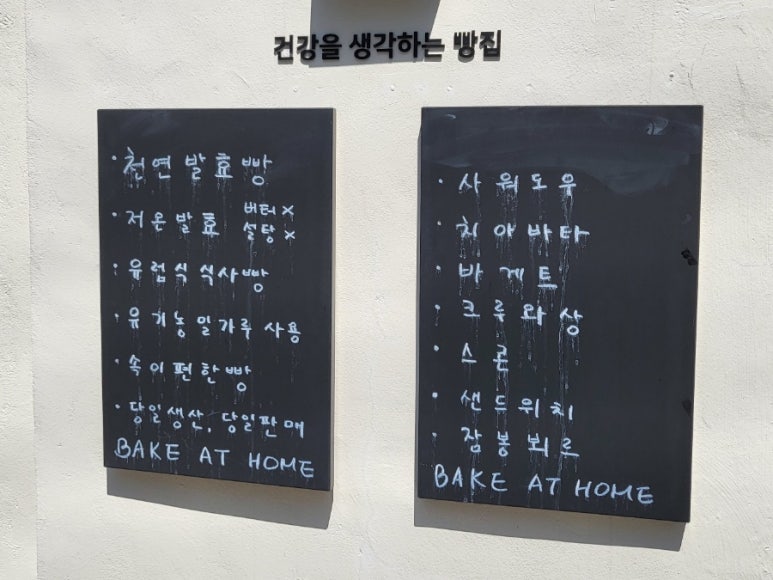 건강을 생각하는 빵집
· 천연발효빵
· 저온발효 버터 x
설탕 x
· 유럽식식사빵
· 유기농밀가루 사용
· 속이편한빵
· 당일생산, 당일판매
BAKE AT HOME
· 사워도우
· 치아바타
· 바게트
· 크루와상
· 스콘
· 샌드위치
· 잠봉뵈르
BAKE AT HOME